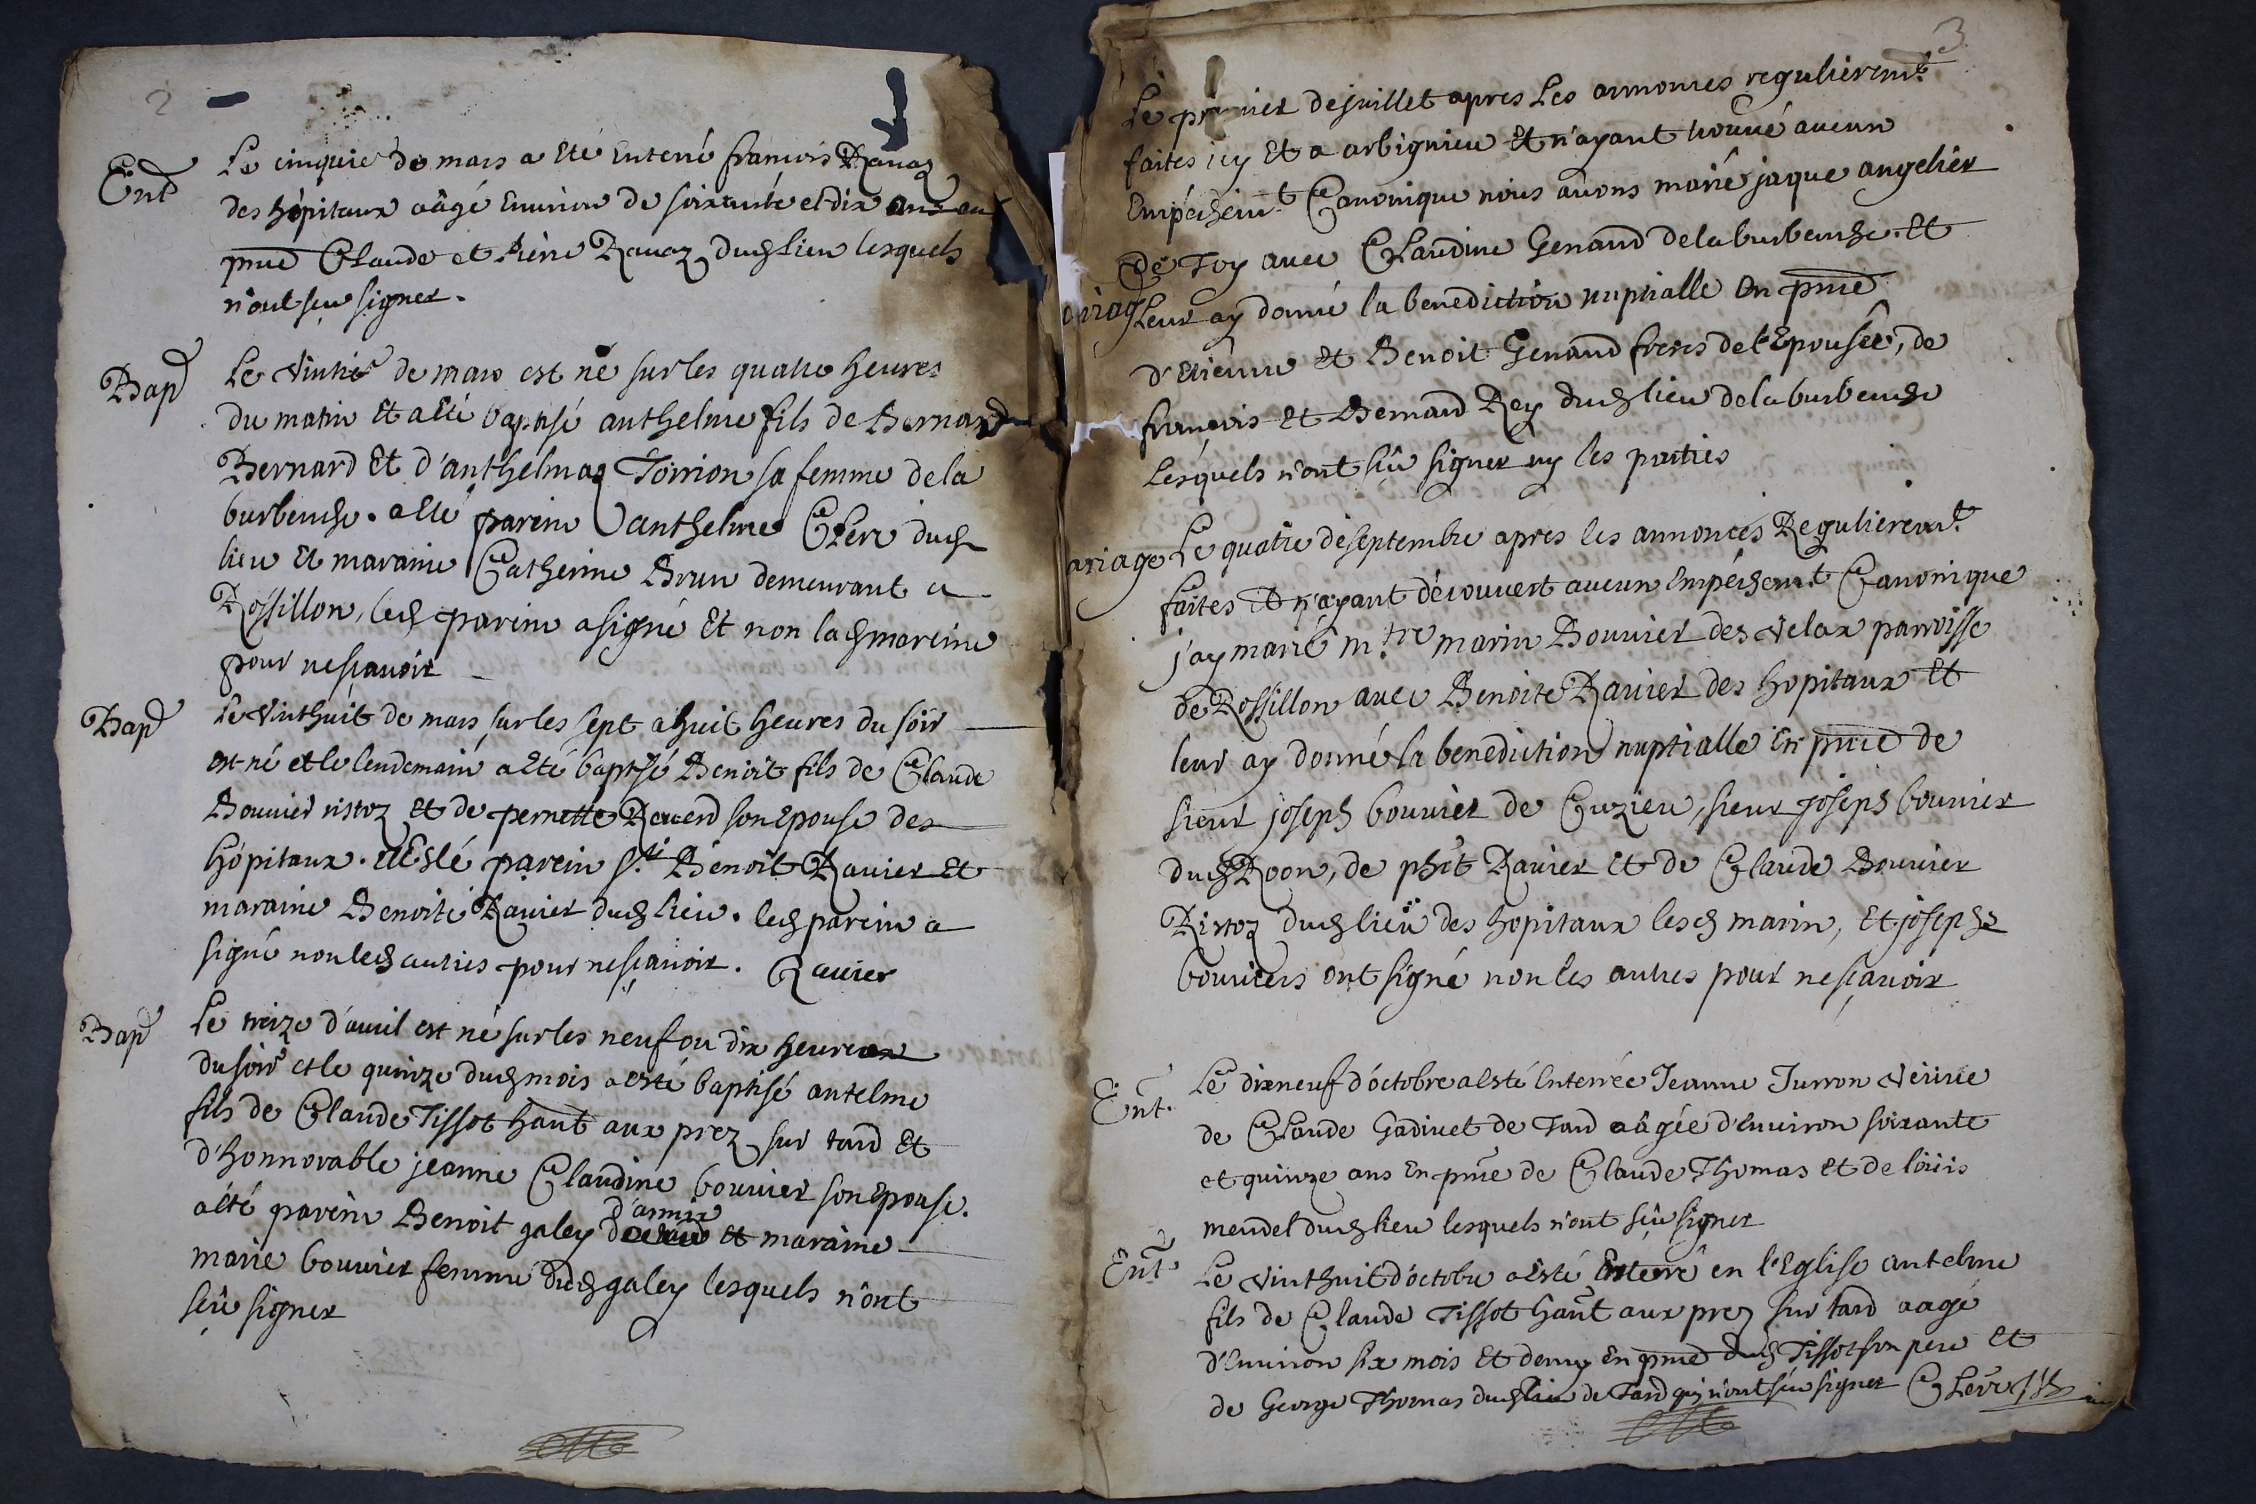 2
Ent
Le cinquie de mars a eté enterré francois Ravaz
des hôpitaux aâgé environ de soixante et dix ans en
pnce Claude et Pierre Ravaz dud lieu lesquels
n'ont sçu signer.
Bap
Le vintie de mars est né sur les quatre heures
du matin et a eté baptisé anthelme fils de Bernard
Bernard et d'anthelmaz Torrion sa femme de la
burbenche. a eté parein anthelme Clerc dud
lieu et maraine Catherine Brun demeurant a
Rossillon, led parein a signé et non lad mareine
pour ne sçavoir
Bap
Le vinthuit de mars sur les sept a huit heures du soir
est né et le lendemain a eté baptisé Benoit fils de Claude
Bouvier ristoz et de pernette Reverd son epouse des
hôpitaux. a esté parein Sr. Benoît Ravier et
maraine Benoite Ravier dud lieu. led parein a
signé non led autres pour ne sçavoir. Ravier
Bap
Le treize d'avril est né sur les neuf ou dix heures
du soir et le quinze dud mois a esté baptisé antelme
fils de Claude Tissot hant aux prez sur tard et
d'honnorable jeanne Claudine bouvier son epouse.
a été parein Benoit galey d'armix et maraine
marie bouvier femme dud galey lesquels n'ont
sçû signer
3
Le premier de juillet apres les annonces regulieremt.
faites icy et a arbignieu et n'ayant trouvé aucun
empéchemt Canonique nous avons marié jaque angelier
de Foy avec Claudine Genand de la burbenche. et
ariag
leur ay donné la benediction nuptialle en pnce
d'etienne et Benoit Genand freres de l'Epousée, de
francois et Bernard Rey dud lieu de la burbenche
lesquels n'ont sçu signer ny les parties
ariage
Le quatre de septembre apres les annonces Regulieremt.
faites et n'ayant découvert aucun empéchemt Canonique
j'ay marié m.tre marin Bouvier des velax parroisse
de Rossillon avec Benoite Ravier des hopitaux et
leur ay donné la benediction nuptialle en pnce de
sieur joseph bouvier de Cuzieu, sieur joseph bouvier
dud Roon, de pht Ravier et de Claude Bouvier
Ristoz dud lieu des hopitaux lesd marin, et josephs
bouviers ont signé non les autres pour ne sçavoir
Ent.
Le dixneuf d'octobre a esté enterrée Jeanne Jurron veuve
de Claude Gadivet de Tard aâgée d'environ soixante
et quinze ans en pnce de Claude Thomas et de loüis
mendel dud lieu lesquels n'ont sçû signer
Ent
Le vinthuit d'octobre a esté enterré en l'Eglise antelme
fils de Claude Tissot hant aux prez sur tard aagé
d'environ six mois et demy en pnce dud Tissot son pere et
de George Thomas dud lieu de Tard qui n'ont sçu signer Clerc